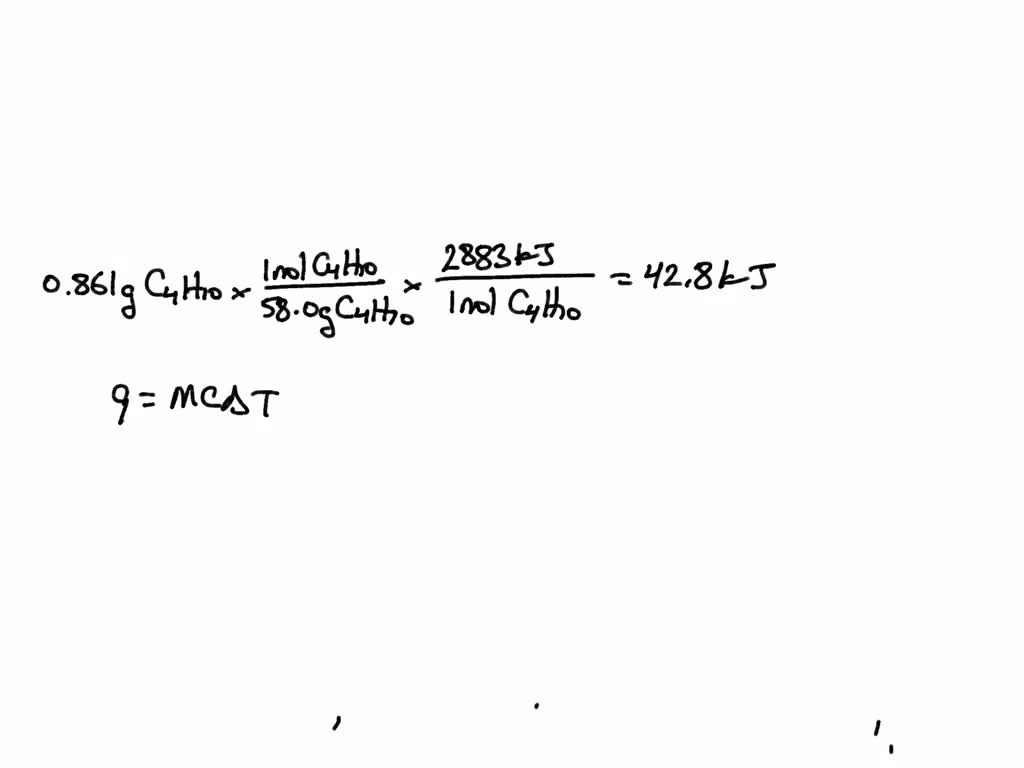 0.861g C4H10 × 1mol C4H10 / 58.0g C4H10 × 2883kJ / 1mol C4H10 = 42.8kJ
q = MCΔT